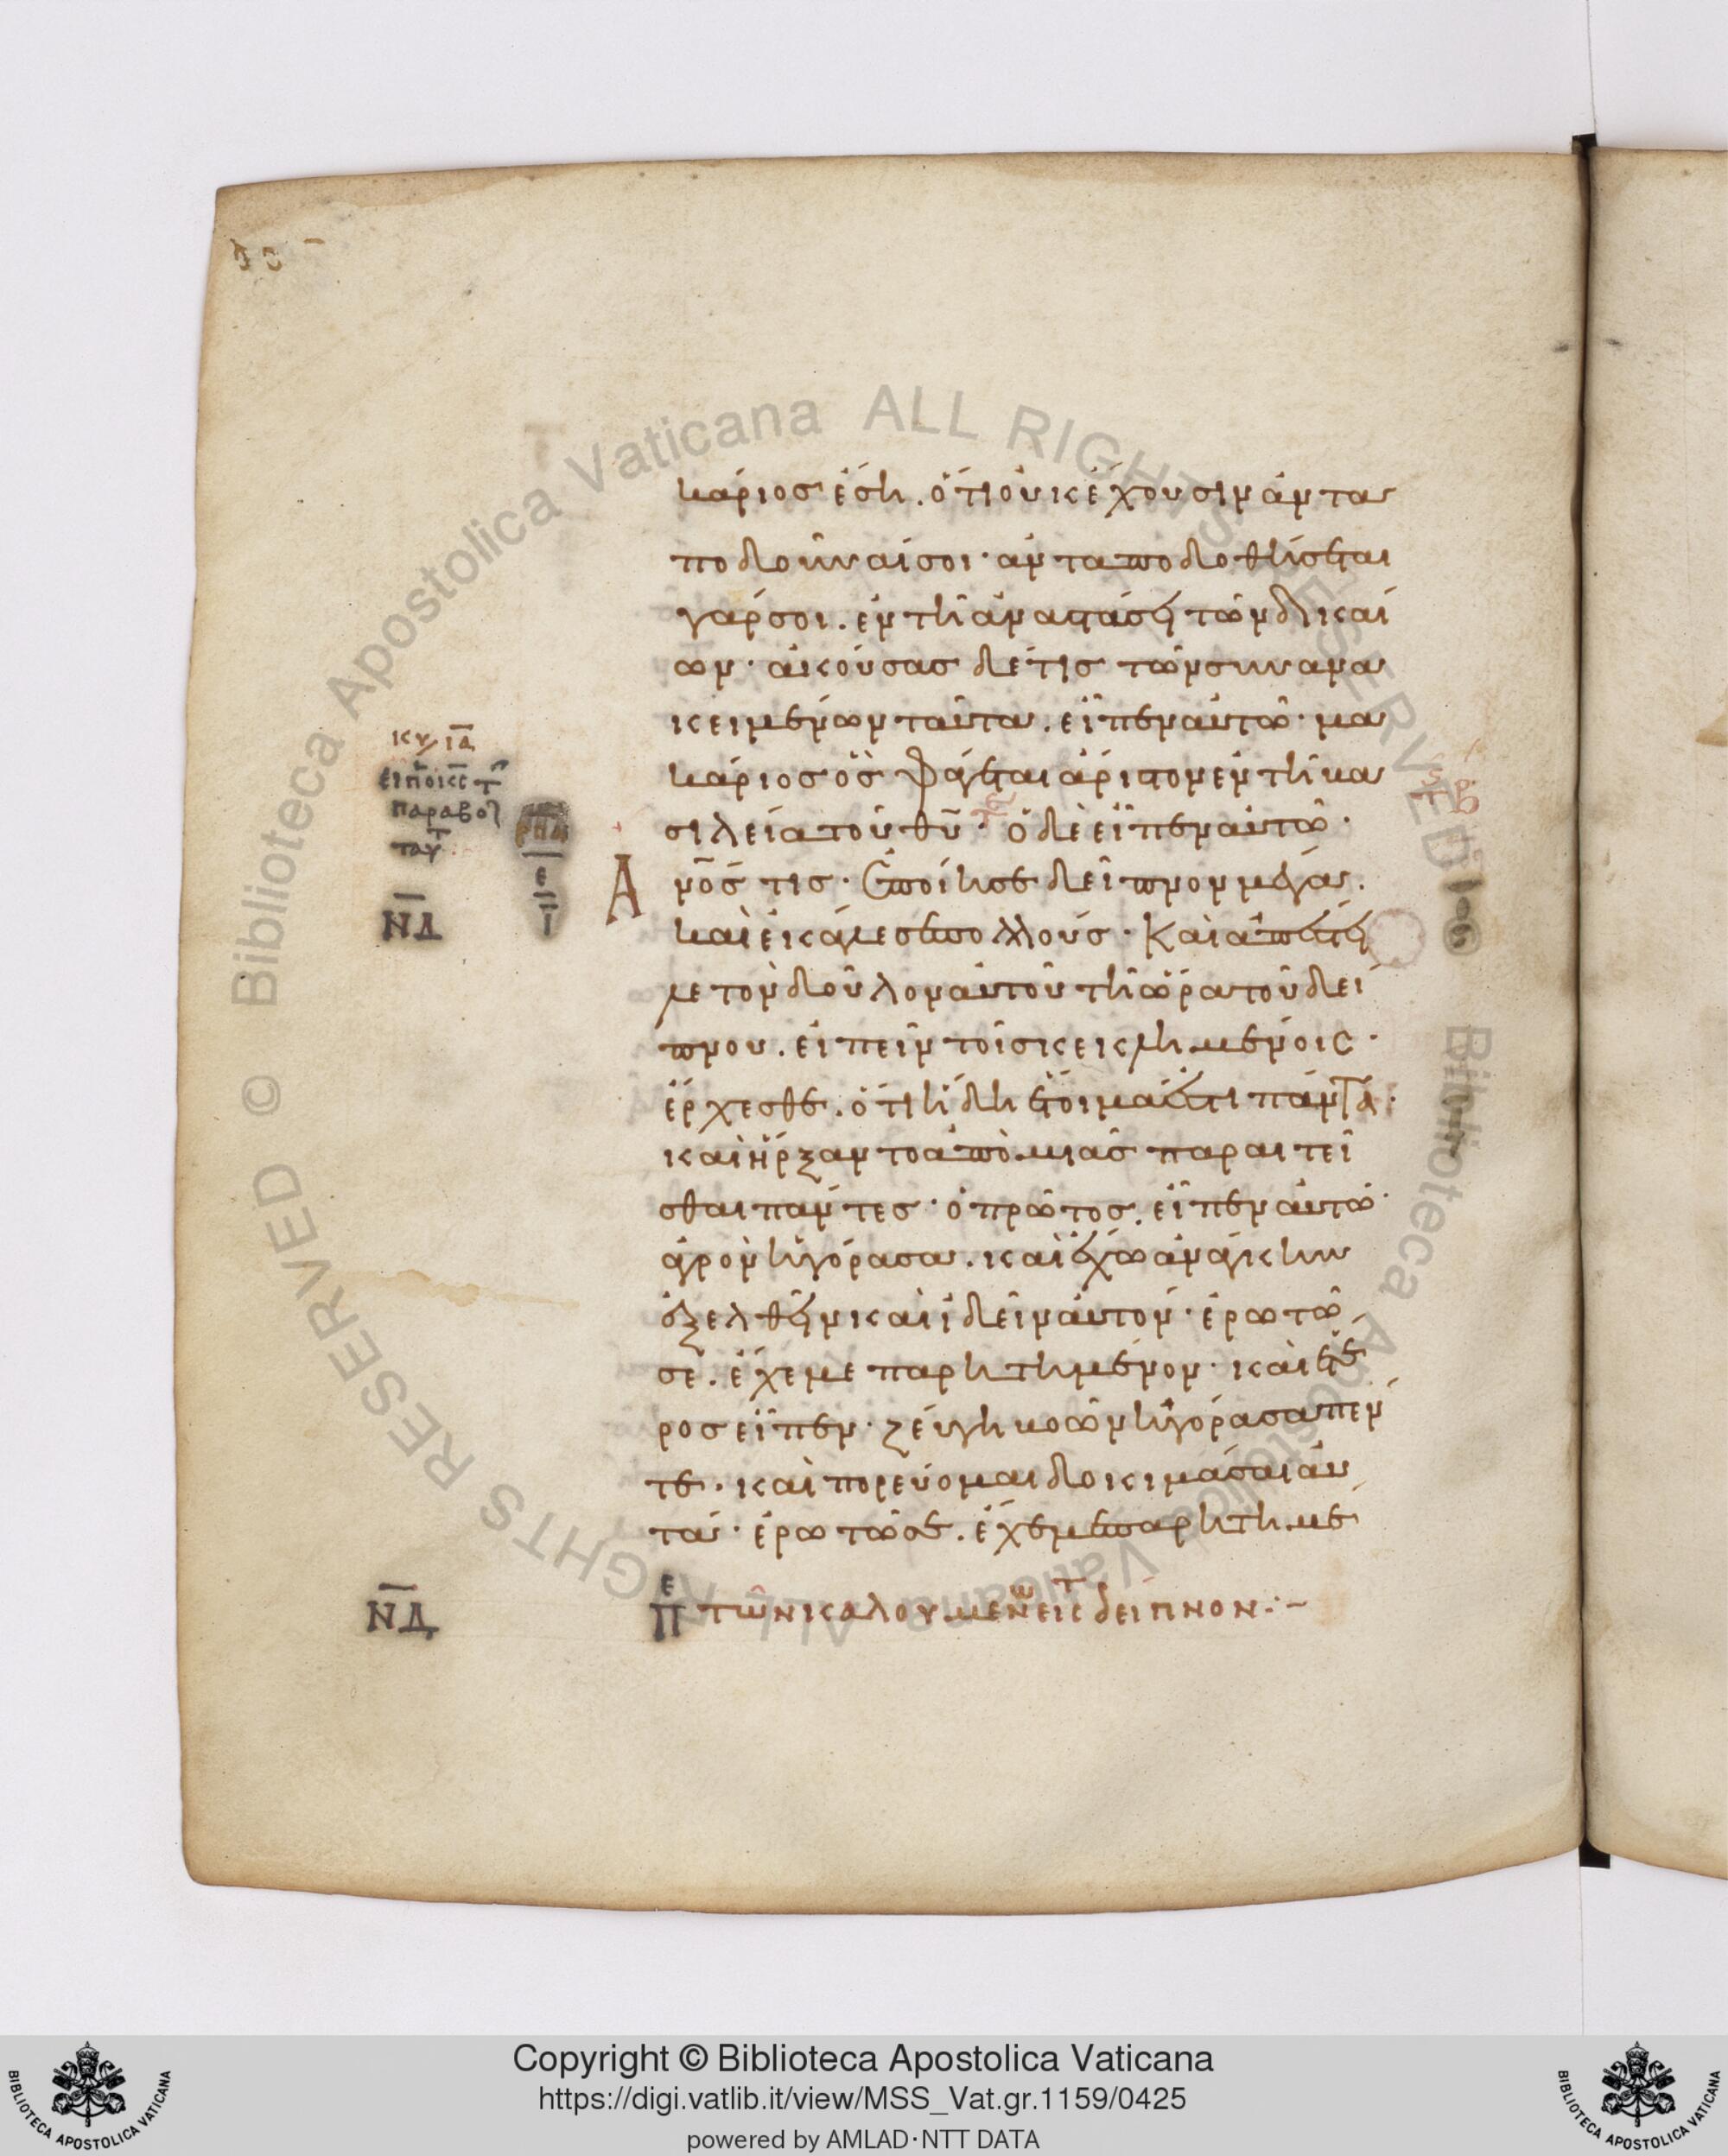 κάριος ἔση. ὅτι οὐκ ἔχουσιν ἀντα
ποδοῦναί σοι· ἀνταποδοθήσεται
γάρ σοι. ἐν τῆ ἀναστάσει τῶν δικαί
ων· ἀκούσας δέ τις τῶν συνανα
κειμένων ταῦτα. εἶπεν αὐτῶ· μα
κάριος ὃς φάγεται ἄριστον ἐν τῆ βα
σιλεία τοῦ θυ̅· ὁ δὲ εἶπεν αὐτῶ·
Α
νο̅ς τις· ἐποίησε δεῖπνον μέγα.
καὶ ἐκάλεσε πολλούς· Καὶ ἀπέστει
λε τὸν δοῦλον αὐτοῦ τῆ ὥρα τοῦ δεί
πνου. εἰπεῖν τοῖς κεκλημένοις·
ἔρχεσθε. ὅτι ἤδη ἕτοιμά ἐστι πάντα·
καὶ ἤρξαντο ἀπὸ μιᾶς παραιτεῖ
σθαι πάντες· ὁ πρῶτος. εἶπεν αὐτῶ·
ἀγρὸν ἠγόρασα. καὶ ἔχω ἀνάγκην
ἐξελθεῖν καὶ ἰδεῖν αὐτόν· ἐρωτῶ
σε. ἔχε με παρητημένον· καὶ ἕτε
ρος εἶπεν· ζεύγη βοῶν ἠγόρασα πέν
τε· καὶ πορεύομαι δοκιμάσαι αὐ
τά· ἐρωτῶ σε. ἔχε με παρητημέ
κυ ια̅
παραβολ
ταυτ
ρπα
ε
ι̅
ΝΔ̅
ΝΔ̅
πε τῶν καλουμένων εἰς τ δεῖπνον:~
Biblioteca Apostolica Vaticana ALL RIGHTS RESERVED ©
Copyright © Biblioteca Apostolica Vaticana
https://digi.vatlib.it/view/MSS_Vat.gr.1159/0425
powered by AMLAD·NTT DATA
BIBLIOTECA APOSTOLICA VATICANA
BIBLIOTECA APOSTOLICA VATICANA